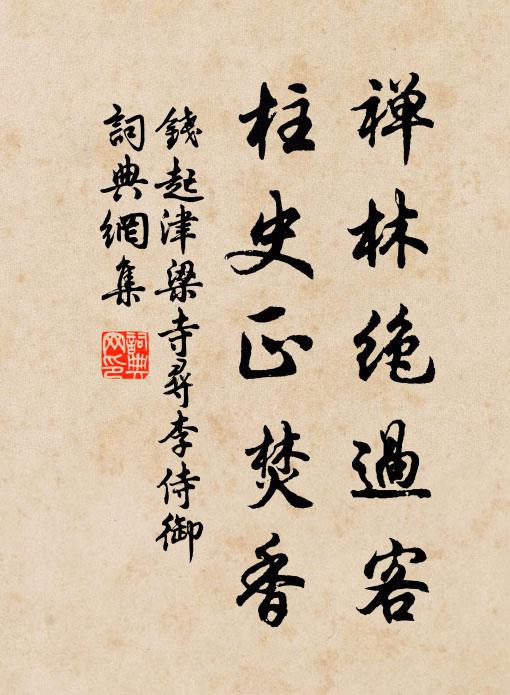 禅林绝過客
柱史正焚香
錢起津梁寺尋李侍御
詞典網集
詞典网印